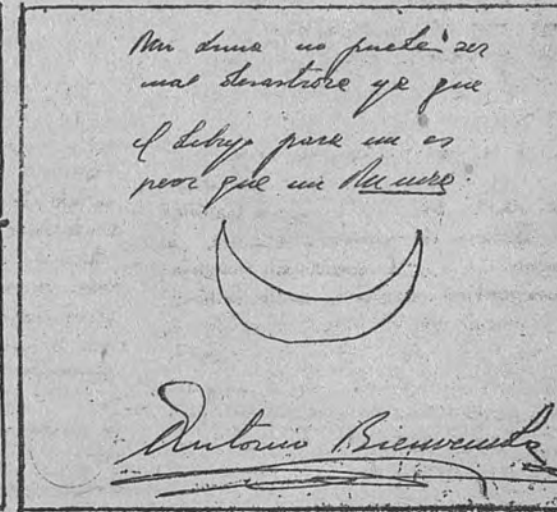 Mi luna no puede ser
mas desastroza ya que
el dibujo para mi es
peor que un Miura
Antonio Bienvenida